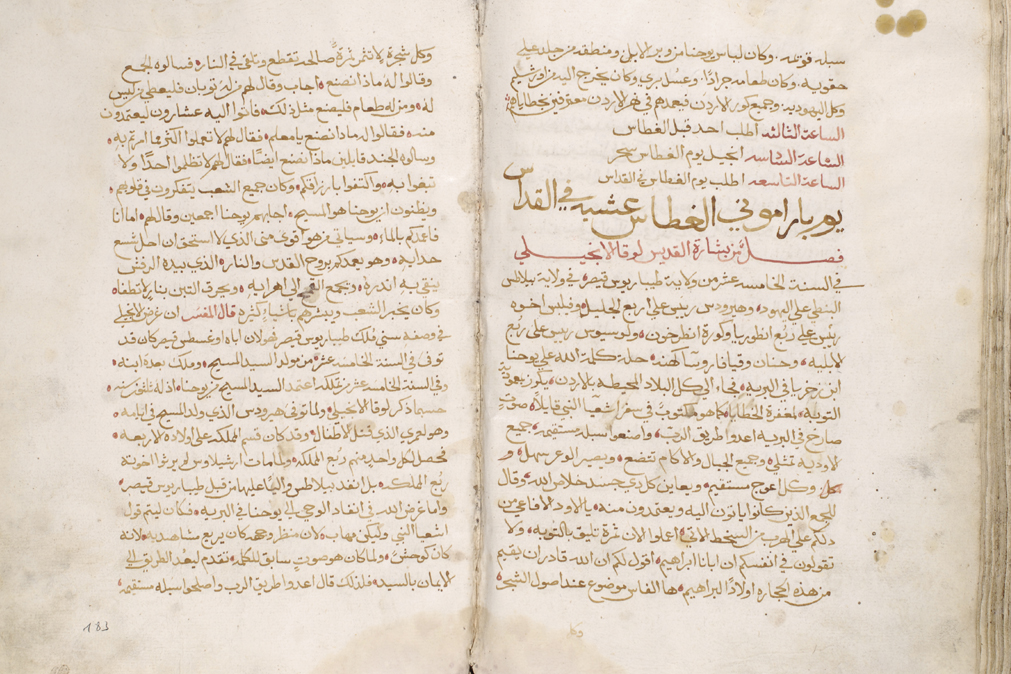 سبله قويمه. وكان لباس يوحنا من وبر الابل ومنطقه من جلد علي
حقويه. وكان طعامه جرادًا وعسل بري وكان يخرج اليه من اورشليم
وكل اليهوديه وجميع كور الاردن فيعمدهم في نهر الاردن معترفين بخطاياهم
الساعة الثالثه اطلب احد قبل الغطاس
الساعة السادسه انجيل يوم الغطاس سحر
الساعة التاسعه اطلب يوم الغطاس في القداس
يوم باراموني الغطاس عشيه في القداس
فصل من بشارة القديس لوقا الانجيلي
في السنه الخامسه عشر من ولاية طيباريوس قيصر في ولاية بيلاطس
البنطي علي اليهود وهيرودس ريس علي اربع الجليل وفيلبس اخوه
ريس علي ربع انطوريا وكورة انطرخون ولوسيوس ريس علي ربع
الابليه وحنان وقيافا روسا كهنه حلت كلمة الله علي يوحنا
ابن زخريا في البريه فجا الي كل البلاد المحيطه بالاردن يكرز بمعمودية
التوبه لمغفرة الخطايا كما هو مكتوب في سفر اشعيا النبي قايلا صوت
صارخ في البريه اعدوا طريق الرب واصنعوا سبله مستقيمه جميع
لاوديه تمتلي وجميع الجبال والاكام تتضع ويصير الوعر سهلا و
وكل اعوج مستقيم ويعاين كل ذي جسد خلاص الله وقال
للجمع الذين كانوا ياتون اليه ويعتمدون منه يا اولاد الافاعي من
دلكم علي الهرب من السخط الاتي اعملوا الان ثمرة تليق بالتوبه ولا
تقولون في انفسكم ان ابانا ابراهيم اقول لكم ان الله قادر ان يقيم
من هذه الحجاره اولادًا لابراهيم ها الفاس موضوع عند اصول الشجر
وكل
وكل شجرة لا تثمر ثمرة صالحه تقطع وتلقي في النار فسالوه الجمع
وقالوا له ماذا نصنع اجاب وقال لهم من له ثوبان فليعطي من ليس
له ومن له طعام فليصنع مثل ذلك فاتوا اليه عشارون ليعتمدون
منه فقالوا له ماذا نصنع يا معلم فقال لهم لا تعملوا اكثر مما امرتم به
وسالوه الجند قايلين ماذا نصنع ايضًا فقال لهم لا تظلموا احدًا ولا
تبغوا به واكتفوا بارزاقكم وكان جميع الشعب يتفكرون في قلوبهم
ويظنون ان يوحنا هو المسيح اجابهم يوحنا اجمعين وقال لهم اما انا
فاعمدكم بالما وسياتي من هو اقوي مني الذي لا استحق ان احل شسع
حدايه وهو يعمدكم بروح القدس والنار الذي بيده الرفش
ينقي به اندره ويجمع القمح الي اهرايه ويحرق التبن بنار لا تطفا
وكان يخبر الشعب ويبشرهم باشيا كثيره قال المفسر ان غرض الانجيلي
في وصفه سني ملك طيباريوس قيصر فهو لان اباه اوغسطس قيصر كان قد
توفي في السنه الخامسه عشره من مولد السيد المسيح وملك بعده ابنه
وفي السنه الخامسه عشر من ملكه اعتمد السيد المسيح من يوحنا اذ له ثلثين سنه
حسبما ذكر لوقا الانجيلي ولما توفي هيرودس الذي ولد المسيح في ايامه
وهو لعمري الذي قتل الاطفال وقد كان قسم المملكه علي اولاده الاربعه
فحصل لكل واحد منهم ربع المملكه ولما مات ارشيلاوس لم يرثوا اخوته
ربع المملكه بل انفد بيلاطس واليا عليها من قبل طيباريوس قيصر
واما غرض الله في انفاد الوحي الي يوحنا في البريه فكان ليتم قول
اشعيا النبي وليكي مهاب ولان منظر وجهه كان يريع مشاهديه لانه
كان كوحشي ولما كان هو صوت سابق للكلمه تقدم ليعد الطريق الي
الايمان بالسيد فلذلك قال اعدوا طريق الرب واصلحوا سبله مستقيمه
183